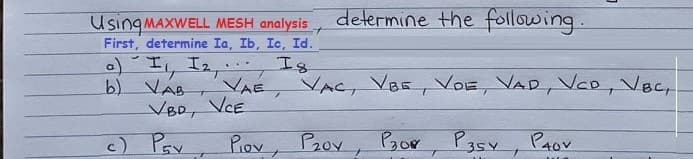 Using MAXWELL MESH analysis, determine the following.
First, determine Ia, Ib, Ic, Id.
a) I1, I2, ..., I8
b) VAB, VAE, VAC, VBE, VDE, VAD, VCD, VBC,
VBD, VCE
c) P5V, P10V, P20V, P30V, P35V, P40V